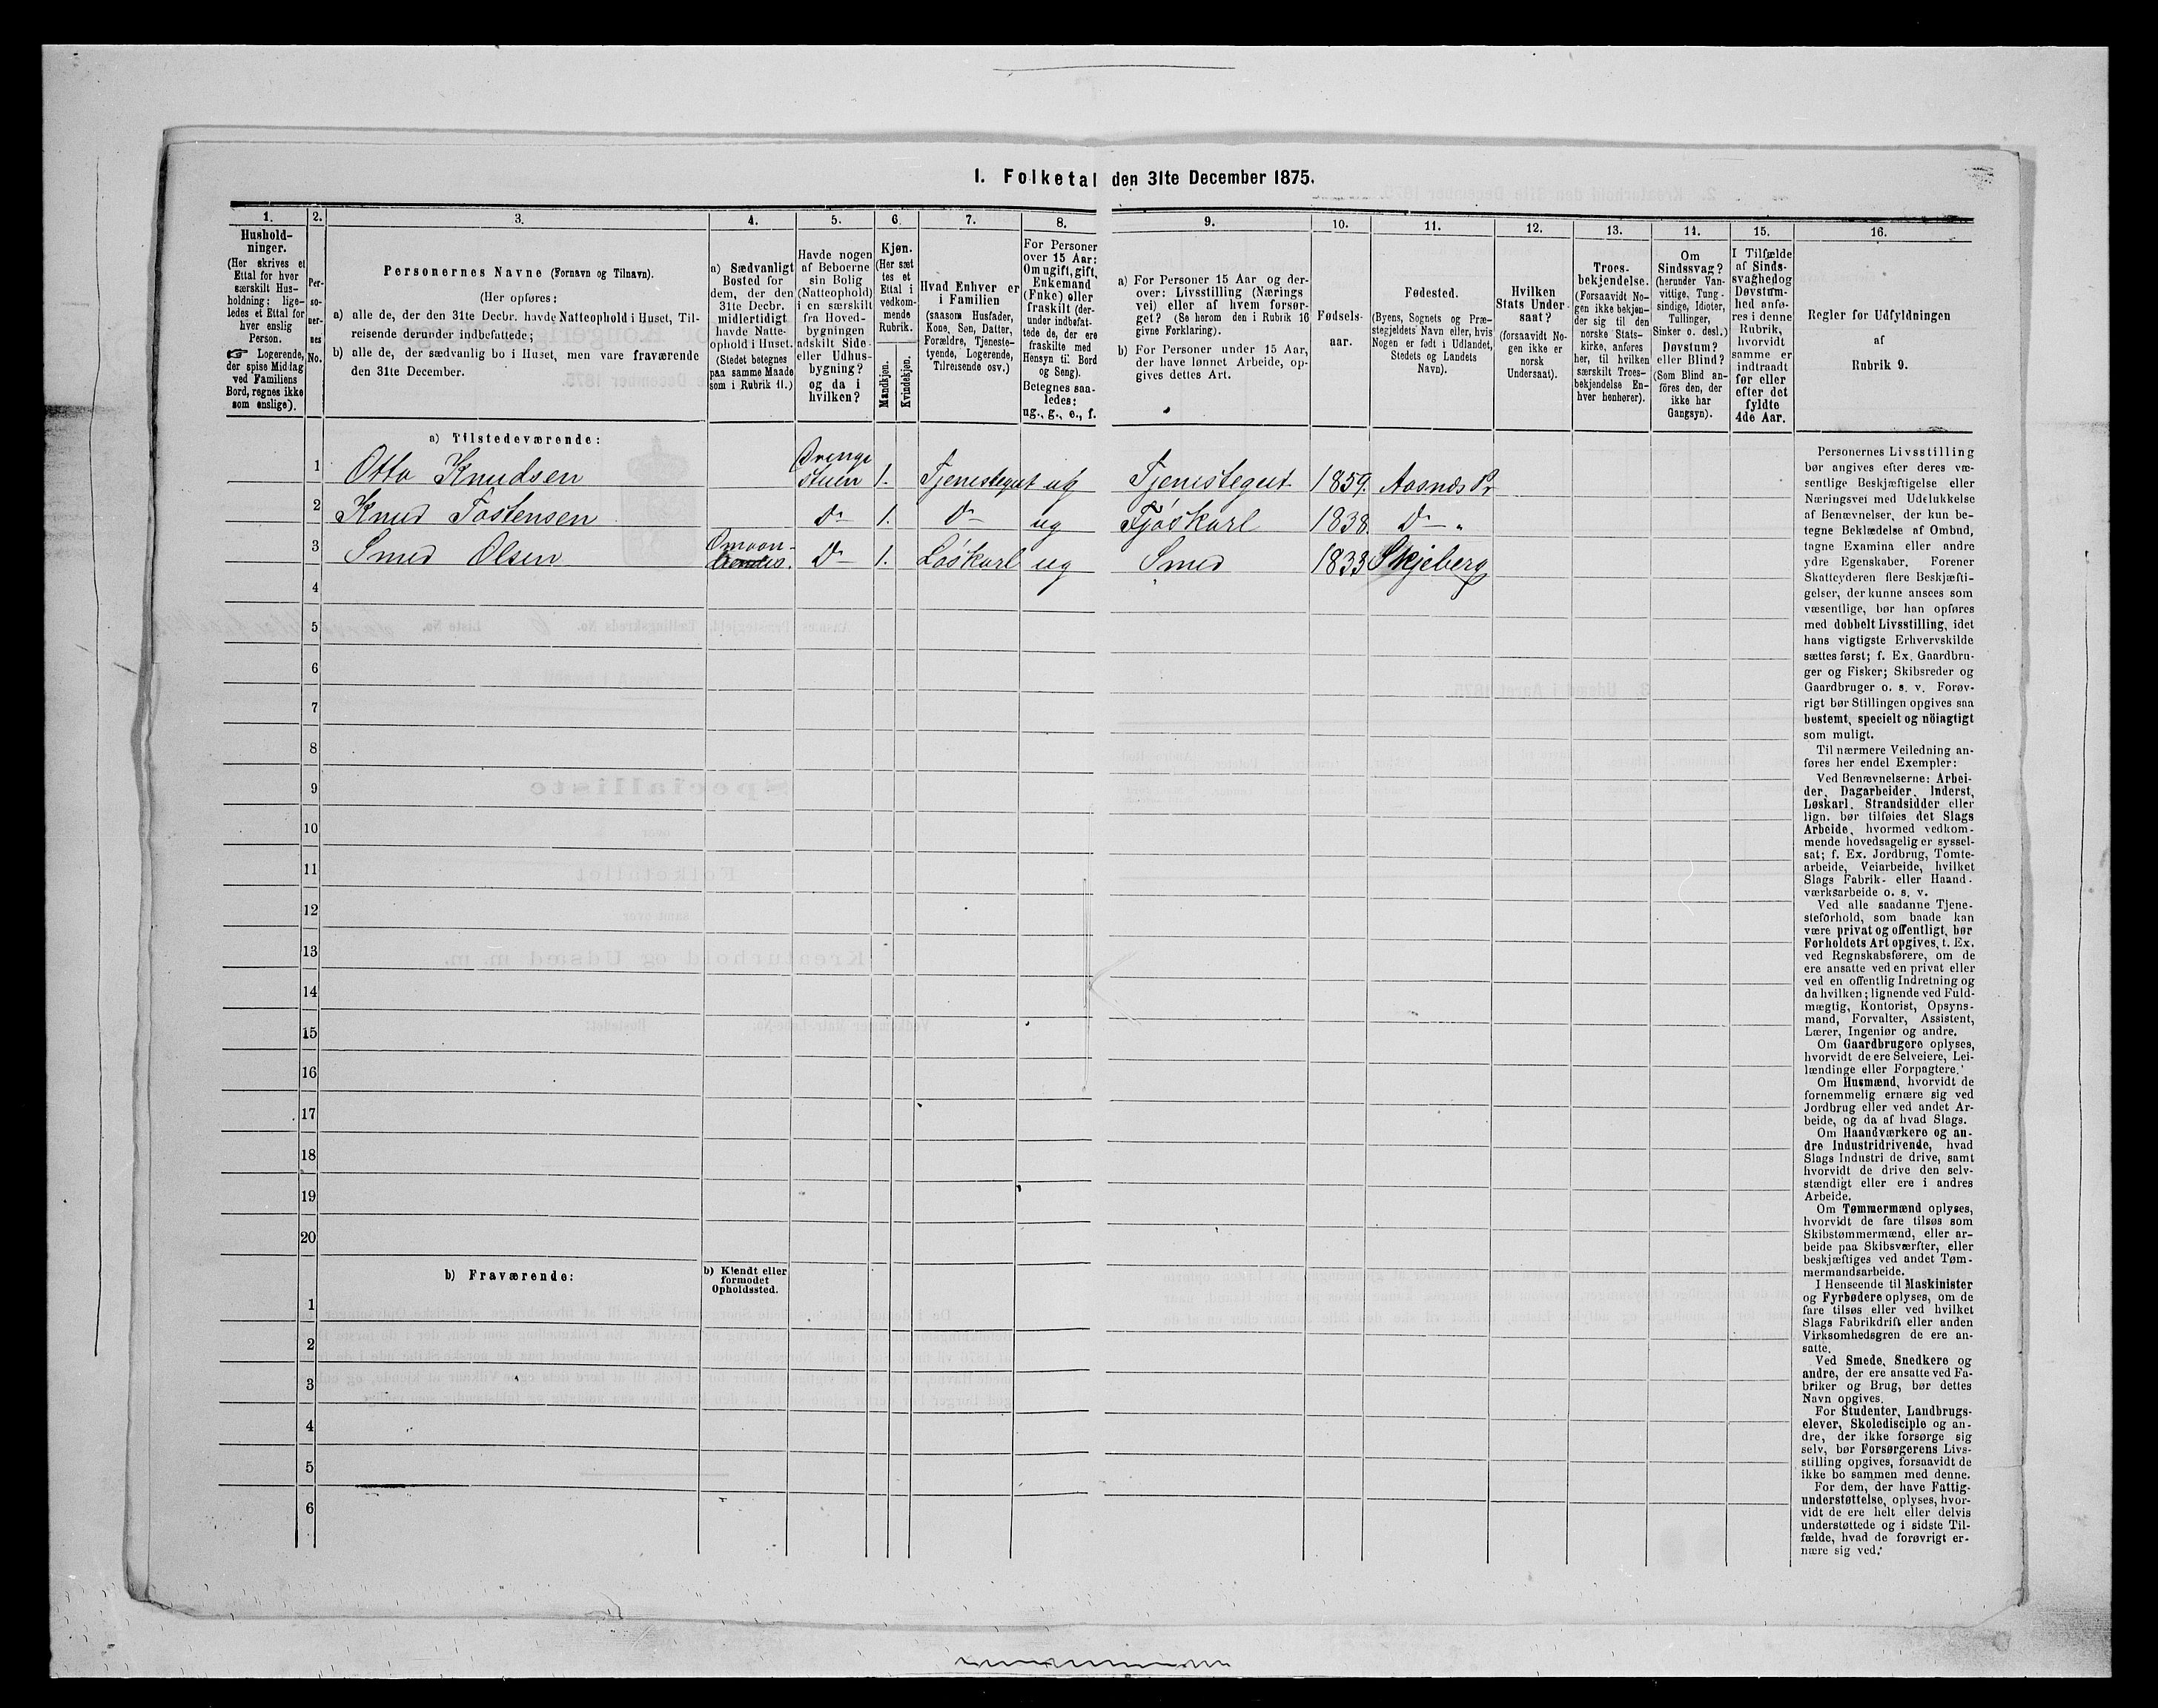 1. Folketal den 31te December 1875.
1. 2. 3. 4. 5. 6. 7. 8. 9. 10. 11. 12. 13. 14. 15. 16.
Hushold-
ninger.
(Her skrives et
Ettal for hver
særskilt Hus-
holdning; lige-
ledes et Ettal for
hver enslig
Person.
☞ Logerende,
der spise Middag
ved Familiens
Bord, regnes ikke
som enslige).
Per-
so-
ner-
nes
No.
Personernes Navne (Fornavn og Tilnavn).
(Her opføres:
a) alle de, der den 31te Decbr. havde Natteophold i Huset, Til-
reisende derunder indbefattede;
b) alle de, der sædvanlig bo i Huset, men vare fraværende
den 31te December.
a) Sædvanligt
Bosted for
dem, der den
31te Decbr.
midlertidigt
havde Natte-
ophold i Huset.
(Stedet betegnes
paa samme Maade
som i Rubrik 11.)
Havde nogen
af Beboerne
sin Bolig
(Natteophold)
i en særskilt
fra Hoved-
bygningen
adskilt Side-
eller Udhus-
bygning?
og da i
hvilken?
Kjøn.
(Her sæt
tes et
Ettal i
vedkom-
mende
Rubrik.
Mandkjøn.
Kvindekjøn.
Hvad Enhver er
i Familien
(saasom Husfader,
Kone, Søn, Datter,
Forældre, Tjeneste-
tyende, Logerende,
Tilreisende osv.)
For Personer
over 15 Aar:
Om ugift, gift,
Enkemand
(Enke) eller
fraskilt (der-
under indbefat-
tede de, der ere
fraskilte med
Hensyn til Bord
og Seng).
Betegnes saa-
ledes:
ug., g., e., f.
a) For Personer 15 Aar og der-
over: Livsstilling (Nærings
vei) eller af hvem forsør-
get? (Se herom den i Rubrik 16
givne Forklaring).
b) For Personer under 15 Aar,
der have lønnet Arbeide, op-
gives dettes Art.
Fødsels-
aar.
Fødested.
(Byens, Sognets og Præ-
stegjeldets Navn eller, hvis
Nogen er født i Udlandet,
Stedets og Landets
Navn).
Hvilken
Stats Under-
saat?
(forsaavidt No-
gen ikke er
norsk
Undersaat).
Troes-
bekjendelse.
(Forsaavidt No-
gen ikke bekjen-
der sig til den
norske Stats-
kirke, anføres
her, til hvilken
særskilt Troes-
bekjendelse En-
hver henhører).
Om
Sindssvag?
(herunder Van-
vittige, Tung-
sindige, Idioter,
Tullinger,
Sinker o. desl.)
Døvstum?
eller Blind?
(Som Blind an-
föres den, der
ikke har
Gangsyn).
I Tilfælde
af Sinds-
svaghed og
Døvstum-
hed anfø-
res i denne
Rubrik,
hvorvidt
samme er
indtraadt
før eller
efter det
fyldte
4de Aar.
Regler for Udfyldningen
af
Rubrik 9.
a) Tilstedeværende:
1 Otto Knudsen stuen 1. Tjenestegut ug Tjenestegut 1859. Aasnæs Pr
2 Knud Tostensen do 1. do ug Fjøskarl 1838 do „
3 Smed Olsen do 1. Løskarl ug Smed 1833 Skjeberg
4
5
6
7
8
9
10
11
12
13
14
15
16
17
18
19
20
b) Fraværende:
b) Kjendt eller
formodet
Opholdssted.
1
2
3
4
5
6
Personernes Livsstilling
bør angives efter deres væ-
sentlige Beskjæftigelse eller
Næringsvei med Udelukkelse
af Benævnelser, der kun be-
tegne Beklædelse af Ombud,
tagne Examina eller andre
ydre Egenskaber. Forener
Skatteyderen flere Beskjæfti-
gelser, der kunne ansees som
væsentlige, bør han opføres
med dobbelt Livsstilling, idet
hans vigtigste Erhvervskilde
sættes først; f. Ex. Gaardbru-
ger og Fisker; Skibsreder og
Gaardbruger o. s. v. Forøv-
rigt bør Stillingen opgives saa
bestemt, specielt og nöiagtigt
som muligt.
Til nærmere Veiledning an-
føres her endel Exempler:
Ved Benævnelserne: Arbei-
der, Dagarbeider, Inderst,
Løskarl, Strandsidder eller
lign. bør tilføies det Slags
Arbeide, hvormed vedkom-
mende hovedsagelig er syssel-
sat; f. Ex. Jordbrug, Tomte-
arbeide, Veiarbeide, hvilket
Slags Fabrik- eller Haand-
værksarbeide o. s. v.
Ved alle saadanne Tjene-
steforhold, som baade kan
være privat og offentligt, bør
Forholdets Art opgives, t. Ex.
ved Regnskabsførere, om de
ere ansatte ved en privat eller
ved en offentlig Indretning og
da hvilken; lignende ved Fuld-
mægtig, Kontorist, Opsyns-
mand, Forvalter, Assistent,
Lærer, Ingeniør og andre.
Om Gaardbrugere oplyses,
hvorvidt de ere Selveiere, Lei-
lændinge eller Forpagtere.
Om Husmænd, hvorvidt de
fornemmelig ernære sig ved
Jordbrug eller ved andet Ar-
beide, og da af hvad Slags.
Om Haandværkere og an-
dre Industridrivende, hvad
Slags Industri de drive, samt
hvorvidt de drive den selv-
stændigt eller ere i andres
Arbeide.
Om Tømmermænd oplyses,
hvorvidt de fare tilsøs som
Skibstømmermænd, eller ar-
beide paa Skibsværfter, eller
beskjæftiges ved andet Tøm-
mermandsarbeide.
I Henseende til Maskinister
og Fyrbødere oplyses, om de
fare tilsøs eller ved hvilket
Slags Fabrikdrift eller anden
Virksomhedsgren de ere an-
satte.
Ved Smede, Snedkere og
andre, der ere ansatte ved Fa-
briker og Brug, bør dettes
Navn opgives.
For Studenter, Landbrugs-
elever, Skoledisciple og an-
dre, der ikke forsørge sig
selv, bør Forsørgerens Livs-
stilling opgives, forsaavidt de
ikke bo sammen med denne.
For dem, der have Fattig-
understøttelse, oplyses, hvor-
vidt de ere helt eller delvis
understøttede og i sidste Til-
fælde, hvad de forøvrigt er-
nære sig ved.